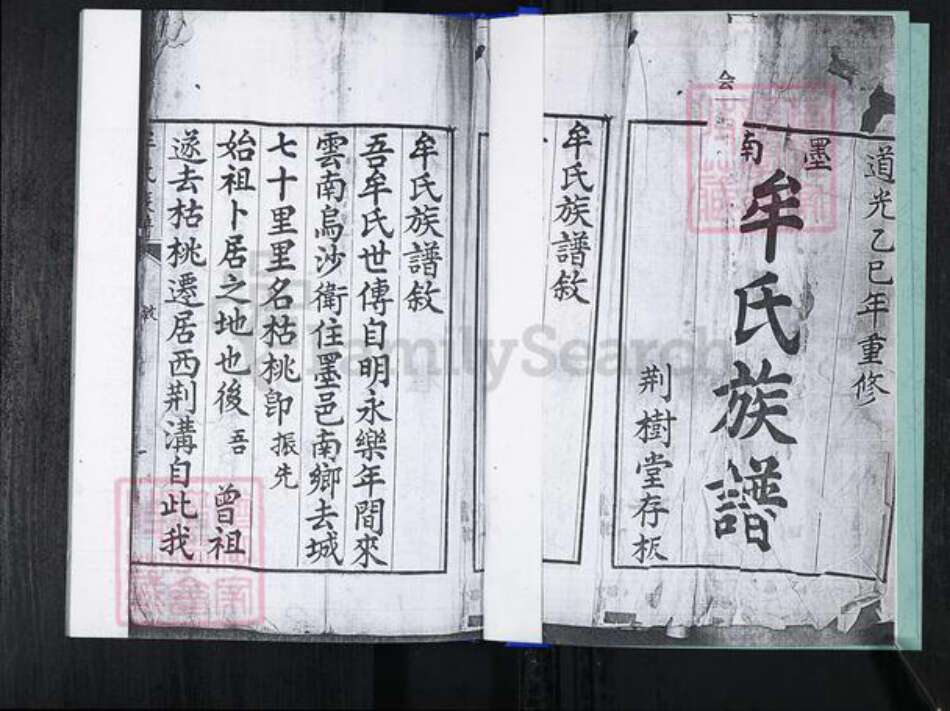 道光乙巳年重修
墨
南
牟氏族譜
荆樹堂存板
会
牟氏族譜敘
牟氏族譜敘
吾牟氏世傳自明永樂年間來
雲南烏沙衛住墨邑南鄉去城
七十里里名枯桃卽振先
始祖卜居之地也後吾曾祖
遂去枯桃遷居西荆溝自此我
敘
FamilySearch